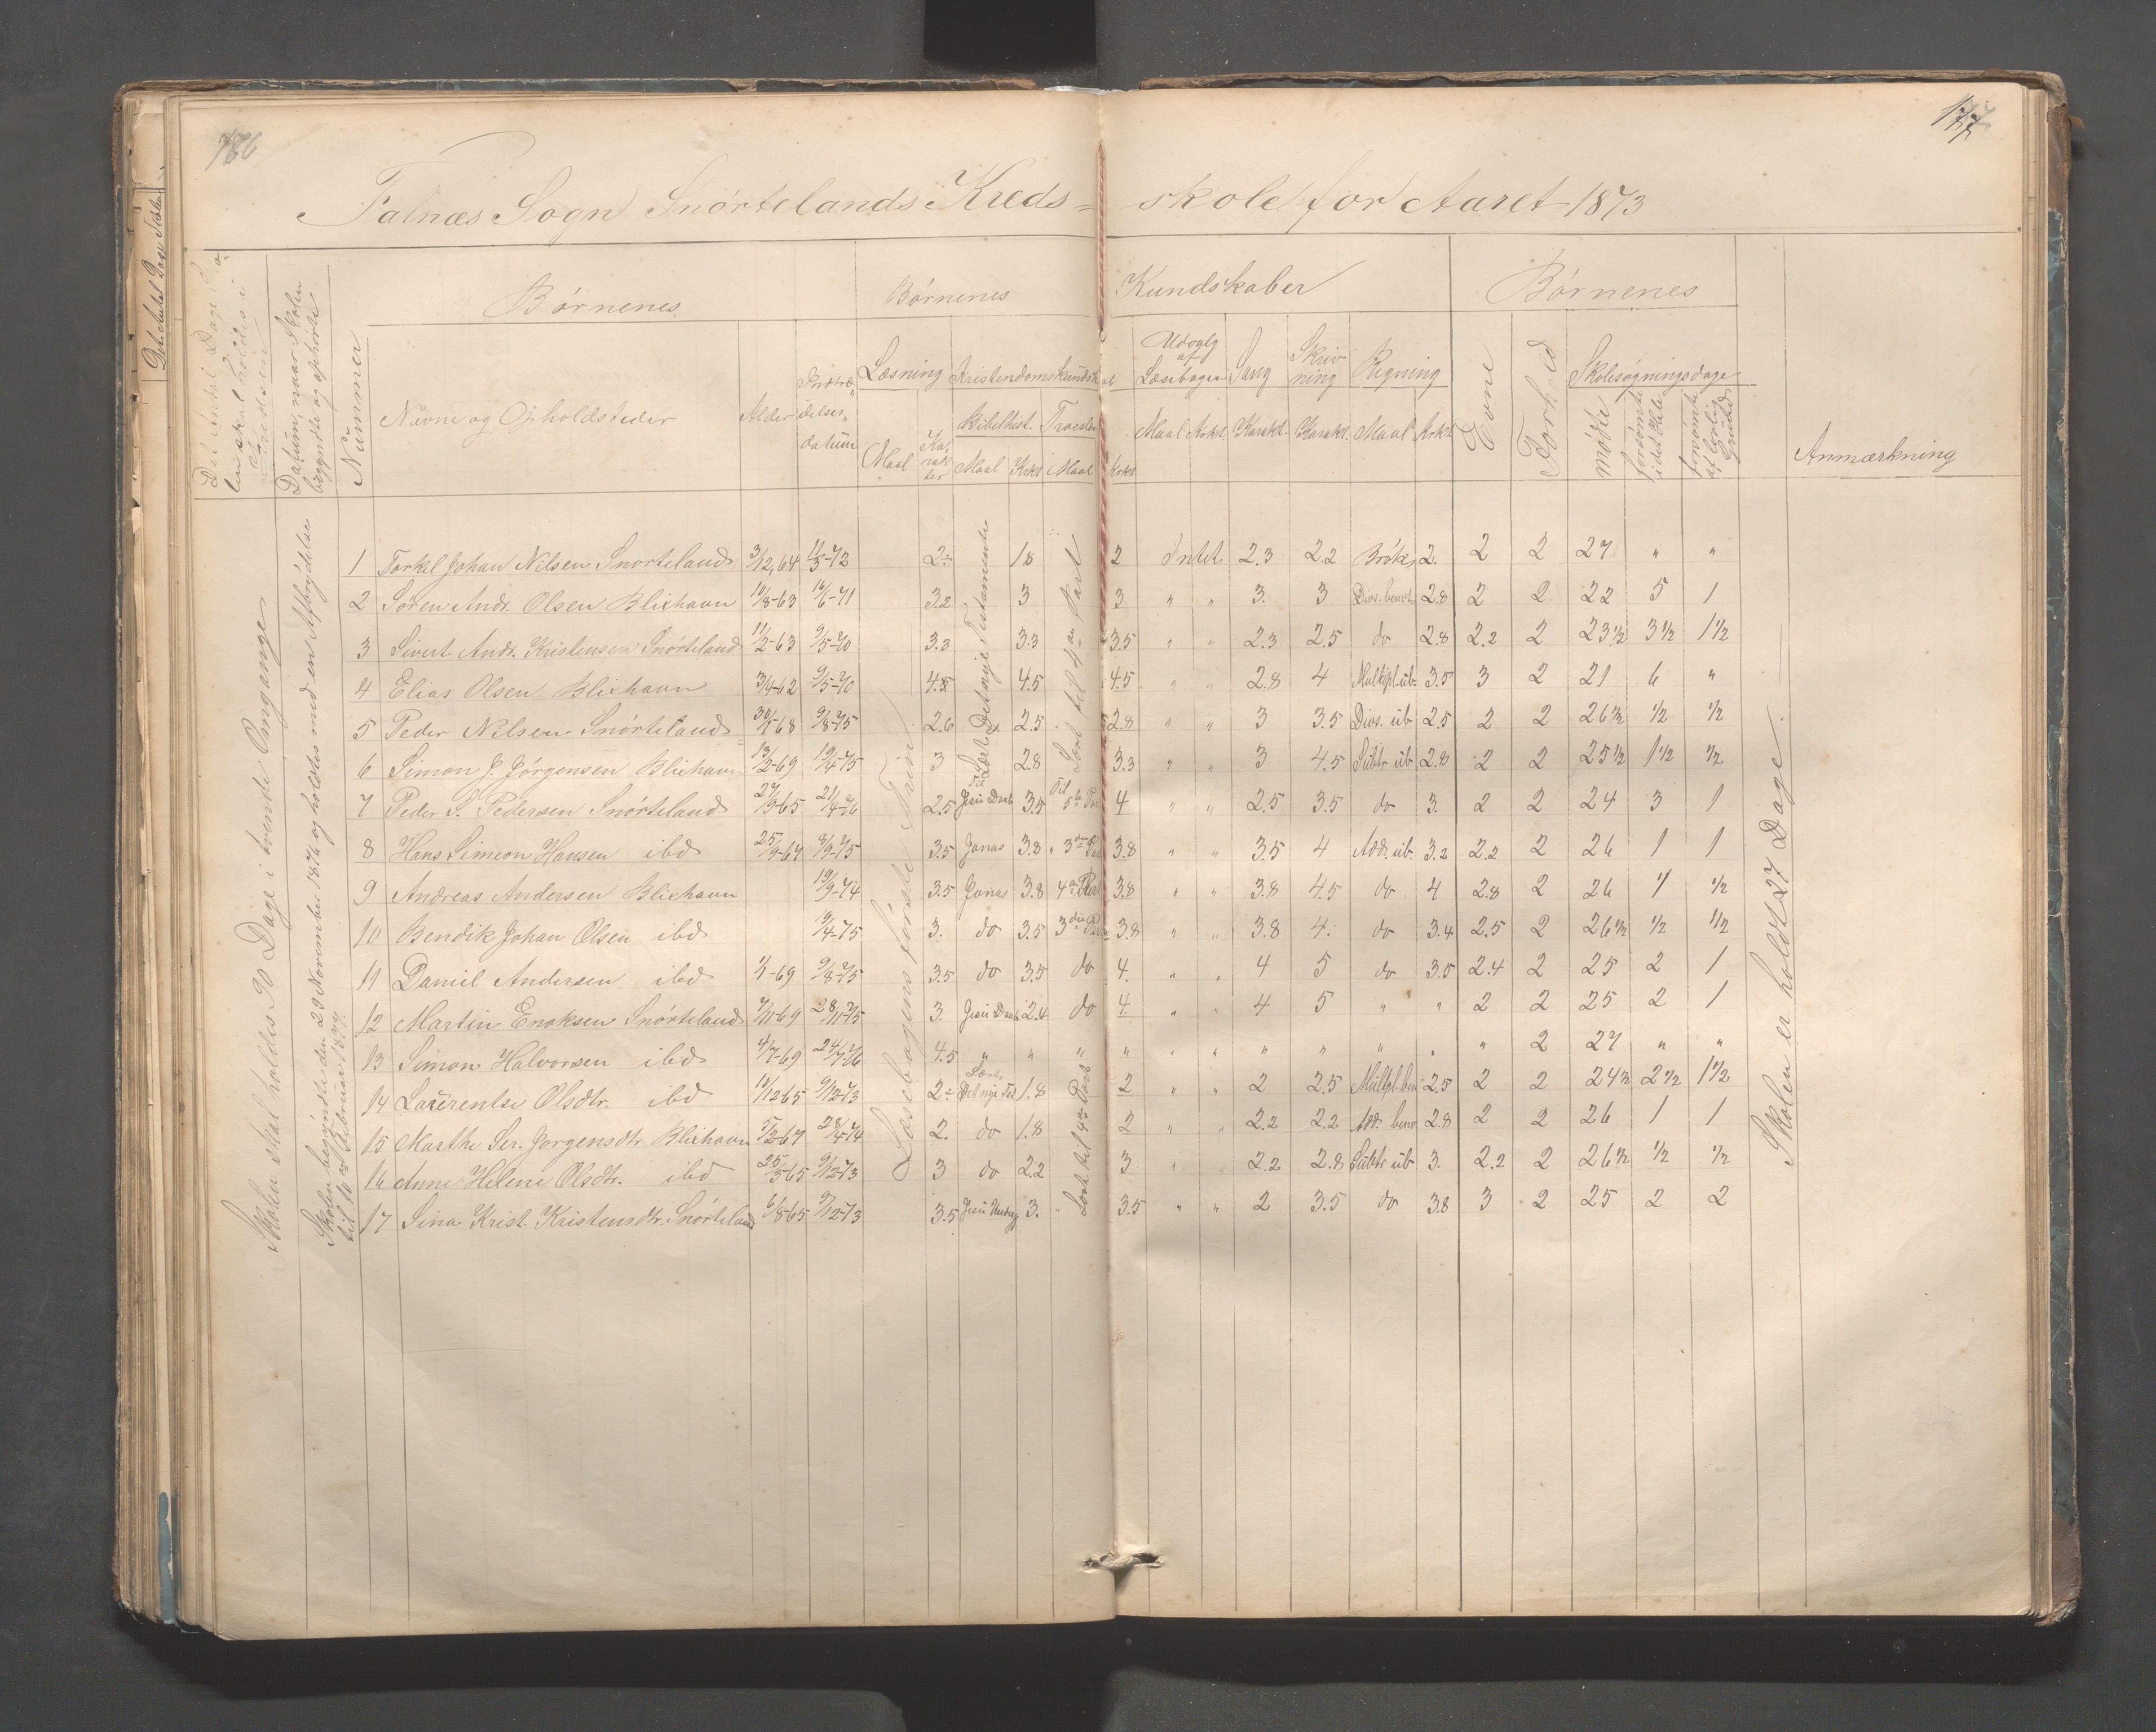 186
177
Falnæs Sogn Snørtelands Kreds-skole for Aaret 1873
Det Antal Dage Skolen skal holdes i Kredsen
Datum, naar Skolen begyndte og ophørte
Nummer
Børnenes
Børnenes Kundskaber
Børnenes
Navne og Opholdssteder
Alder
Indtrædelses-datum
Læsning
Kristendomskundskab
Udvalg af Læsebogen
Sang
Skrivning
Regning
Evne
Forhold
Skolesøgningsdage
Anmærkning
Maal Karakter
Bibelhist. Troeslære
Maal Krkt. Maal Krkt.
Maal Krkt. Karakt. Karakt. Maal Krkt.
mødte
forsømte i det Hele
forsømte af lovlig Grund
Skolen skal holdes 90 Dage i tvende Omgange
Skolen begyndte den 29 November 1876 og holdtes med en Afbrydelse til 10de Februar 1877.
Læsebogens første Trin
Læst Det nye Testamente
Lært til 4de Part
1 Torkel Johan Nilsen Snørteland 3/12, 64 11/3-72 2÷ 18 2 Intet 2.3 2.2 Brøk 2. 2 2 27 " "
2 Søren Andr. Olsen Blixhavn 10/8-63 16/6-71 3.2 3 3 " " 3. 3 Divs. benvt. 2.8 2 2 22 5 1
3 Sivert Andr. Kristensen Snørteland 11/2-63 9/5-70 3.3 3.3 3.5 " " 2.3 2.5 do 2.8 2.2 2 23½ 3½ 1½
4 Elias Olsen Blixhavn 3/4-62 9/5-70 4.5 4.5 4.5 " " 2.8 4 Multipl. ub. 3.5 3 2 21 6 "
5 Peder Nilsen Snørteland 30/1-68 9/8-75 2.6 2.5 2.8 " " 3 3.5 Divs. ub 2.5 2 2 26½ ½ ½
6 Simon J. Jørgensen Blixhavn 13/2-69 19/4-75 3 2.8 3.3 " " 3 4.5 Subtr ub 2.8 2 2 25½ 1½ ½
7 Peder S. Pedersen Snørteland 27/9-65 21/4-76 2.5 Til Jesu Daab 3.5 Til 5te Part 4 " " 2.5 3.5 do 3. 2 2 24 3 1
8 Hans Simeon Hansen ibd 25/9-64 8/9-75 3.5 Jonas 3.8 " 3die Part 3.8 " " 3.5 4 Add. ub. 3.2 2.2 2 26 1 1
9 Andreas Andersen Blixhavn 19/9-74 3.5 Jonas 3.8 4de Part 3.8 " " 3.8 4.5 do 4 2.8 2 26 1 ½
10 Bendik Johan Olsen ibd 19/4-75 3. do 3.5 3die Part 3.8 " " 3.8 4. do 3.4 2.5 2 26½ ½ ½
11 Daniel Andersen ibd 1/1-69 9/8-75 3.5 do 3.5 do 4. " " 4 5 do 3.5 2.4 2 25 2 1
12 Martin Enoksen Snørteland 7/11-69 28/11-75 3. Jesu Daab 2.4 do 4 " " 4 5 " " 2 2 25 2 1
13 Simon Halvorsen ibd 4/7-69 24/7-76 4.5 " " " " " " " " " " " 2 27 " "
14 Laurentse Olsdtr. ibd 10/12-65 9/12-73 2÷ Læst Det nye Tes 1.8 2 " " 2 2.5 Multpl. ben 2.5 2 2 24½ 2½ 1½
15 Marthe Ser. Jørgensdtr Blixhavn 5/2-67 28/4-74 2. do 1.8 2 " " 2.2 2.2 Add. benv. 2.8 2 2 26 1 1
16 Anne Helene Olsdtr. ibd 25/5-65 9/12-73 3 do 2.2 3 " " 2.2 2.8 Subtr ub 3. 2.2 2 26½ ½ ½
17 Sina Krist. Kristensdtr. Snørteland 6/8-65 9/12-73 3.5 3. " 3.5 " " 2 3.5 do 3.8 3 2 25 2 2
Lært til 4de Part
Skolen er holdt 27 Dage.